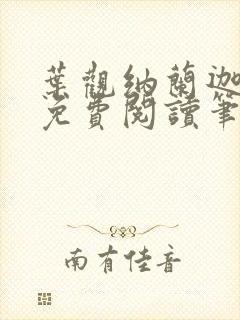 葉觀納蘭迦
免費閱讀筆
南有佳音